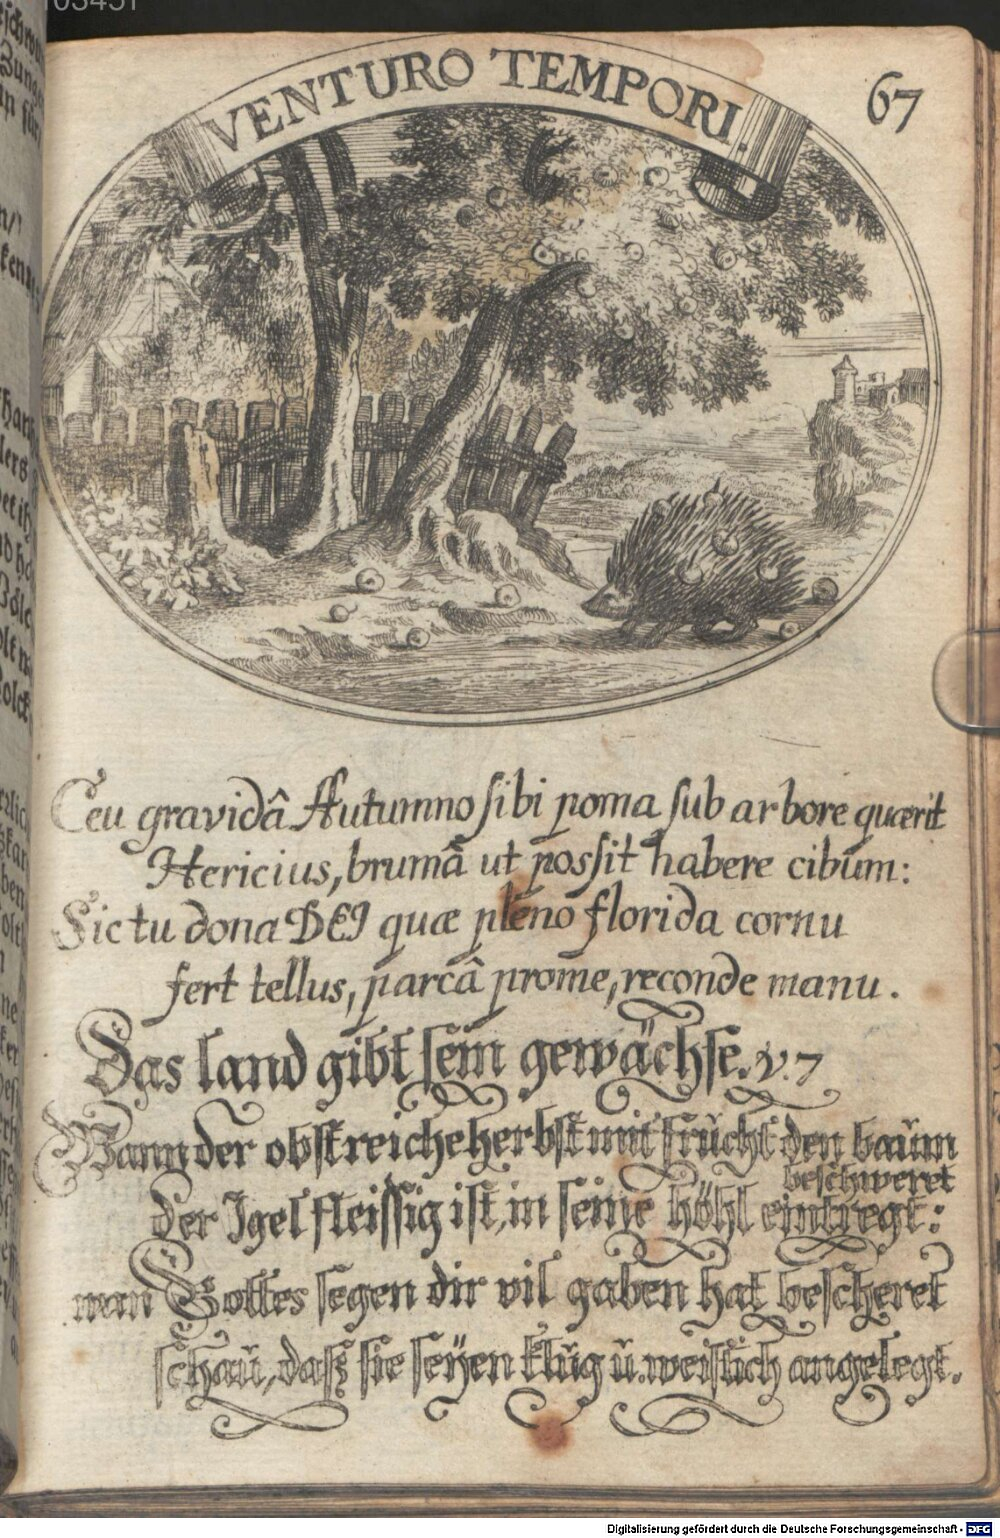 103451
67
VENTURO TEMPORI
Ceu gravidâ Autumno sibi poma sub arbore quærit
Hericius, brumâ ut possit habere cibum:
Sic tu dona DEI quæ pleno florida cornu
fert tellus, parcâ prome, reconde manu.
Das land gibt sein gewächse. v. 7
Wann der obstreiche herbst mit frücht den baum
beschweret
der Igel fleissig ist, in seine höhl eintregt:
wan Gottes segen dir vil gaben hat bescheret
schaŭ, daß sie seyen klŭg ŭ. weislich angelegt.
Digitalisierung gefördert durch die Deutsche Forschungsgemeinschaft - DFG